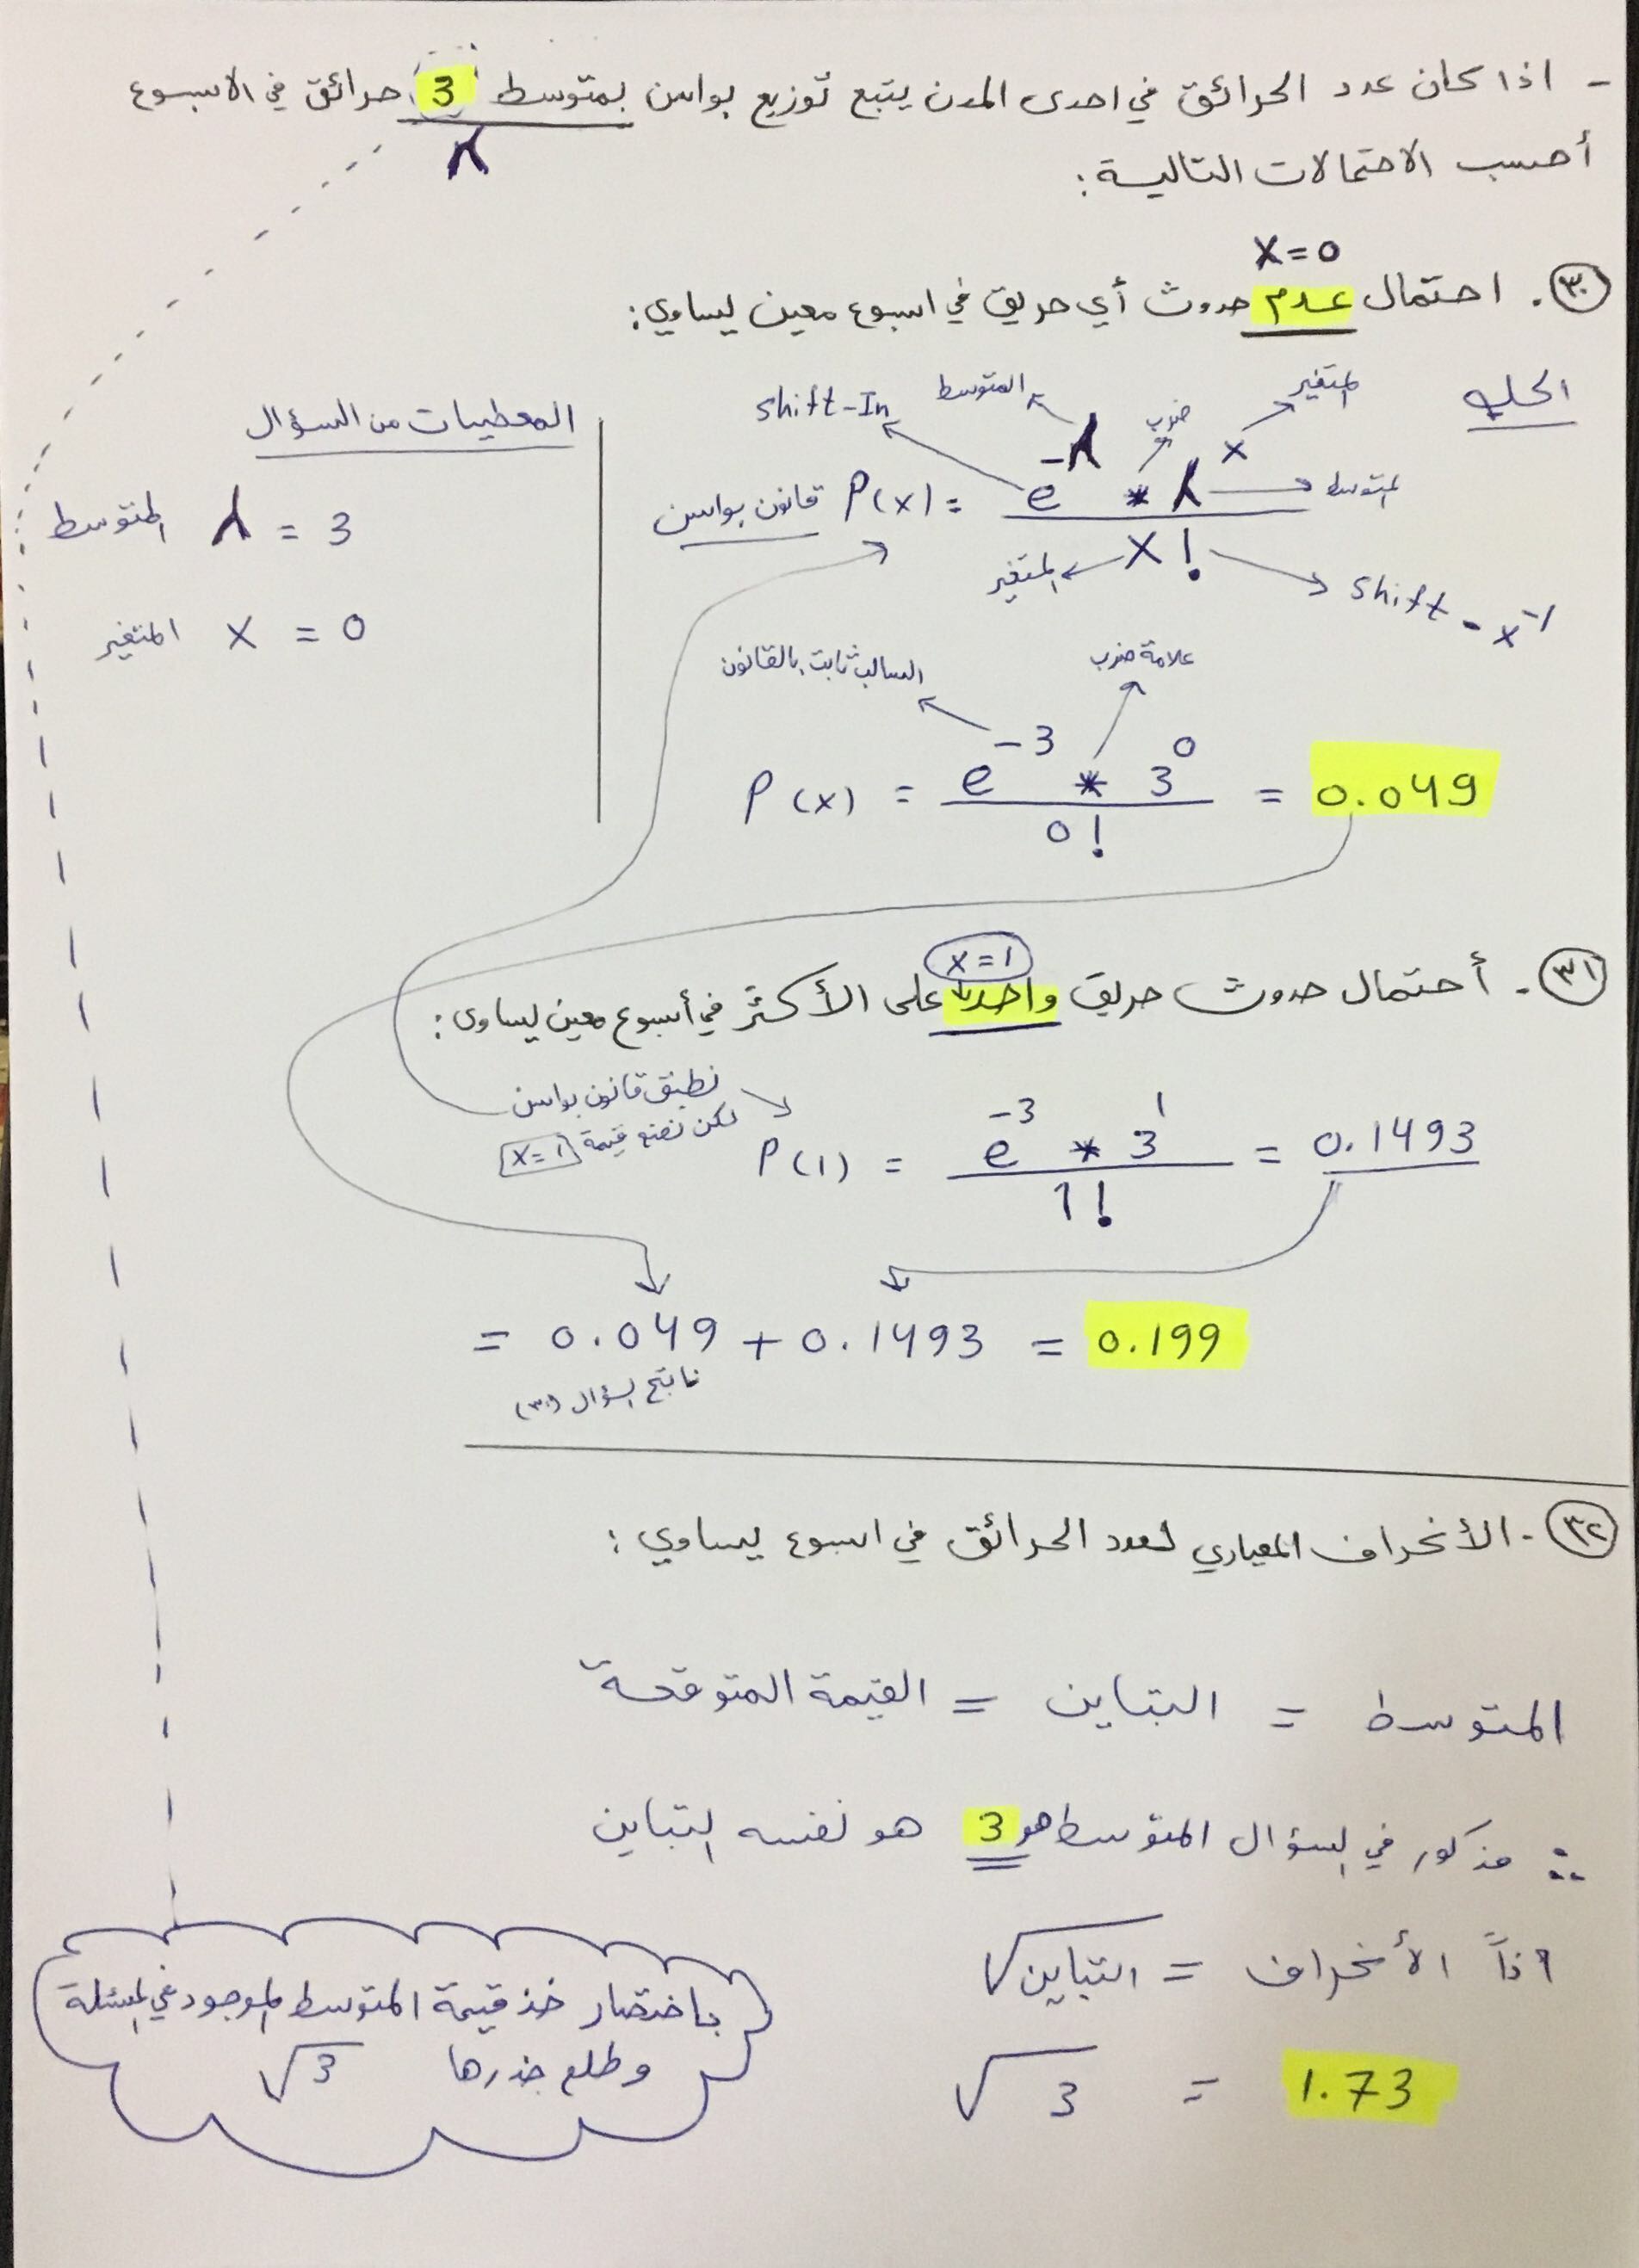 - اذا كان عدد الحرائق في احدى المدن يتبع توزيع بواسن بمتوسط 3 حرائق في الاسبوع
λ
أحسب الاحتمالات التالية:
x = 0
٣٠. احتمال عدم حدوث أي حريق في اسبوع معين يساوي:
الحل
المتغير
ضرب
المتوسط
Shift-In
قانون بواسن P(x) = e^-λ * λ^x / x!
المتوسط
المتغير
Shift - x^-1
المعطيات من السؤال
المتوسط λ = 3
المتغير x = 0
علامة ضرب
السالب ثابت بالقانون
P(x) = e^-3 * 3^0 / 0! = 0.049
x = 1
٣١. أحتمال حدوث حريق واحد على الأكثر في أسبوع معين يساوي:
نطبق قانون بواسن
لكن نضع قيمة x = 1
P(1) = e^-3 * 3^1 / 1! = 0.1493
= 0.049 + 0.1493 = 0.199
ناتج سؤال (٣٠)
٣٢- الأنحراف المعياري لعدد الحرائق في اسبوع يساوي:
المتوسط = التباين = القيمة المتوقعة
∴ مذكور في السؤال المتوسط هو 3 هو نفسه التباين
اذاً الأنحراف = √التباين
√3 = 1.73
باختصار خذ قيمة المتوسط الموجود في المسئلة
وطلع جذرها √3